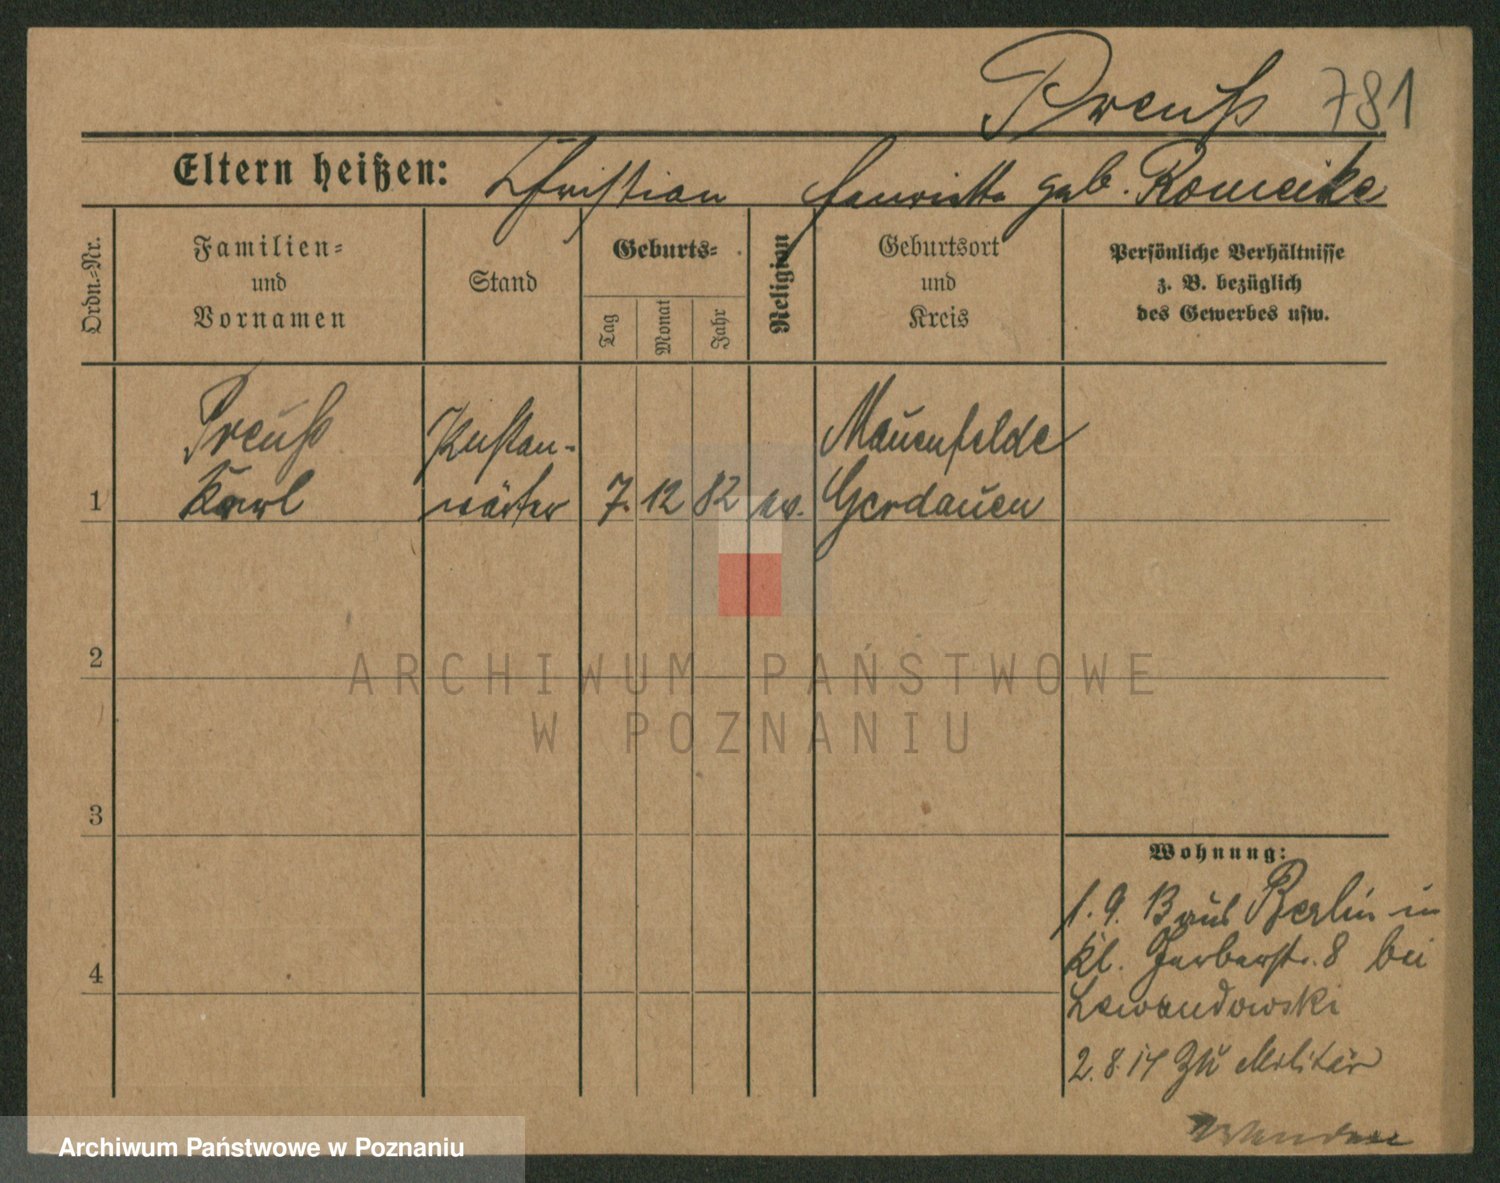 Preuß 781
Eltern heißen: Christian Henriette geb. Romeike
Ordn.=Nr.
Familien=
und
Vornamen
Stand
Geburts=
Tag
Monat
Jahr
Religion
Geburtsort
und
Kreis
Persönliche Verhältnisse
z. B. bezüglich
des Gewerbes usw.
Preuß
Karl
wärter
7. 12 82 ev.
Mauenfelde
Gerdauen
1
2
3
4
Wohnung:
1. 9. 13 aus Berlin in
Kl. Gerberstr. 8 bei
Lewandowski
2. 8. 14 zu Militär
ARCHIWUM PAŃSTWOWE
W POZNANIU
Archiwum Państwowe w Poznaniu